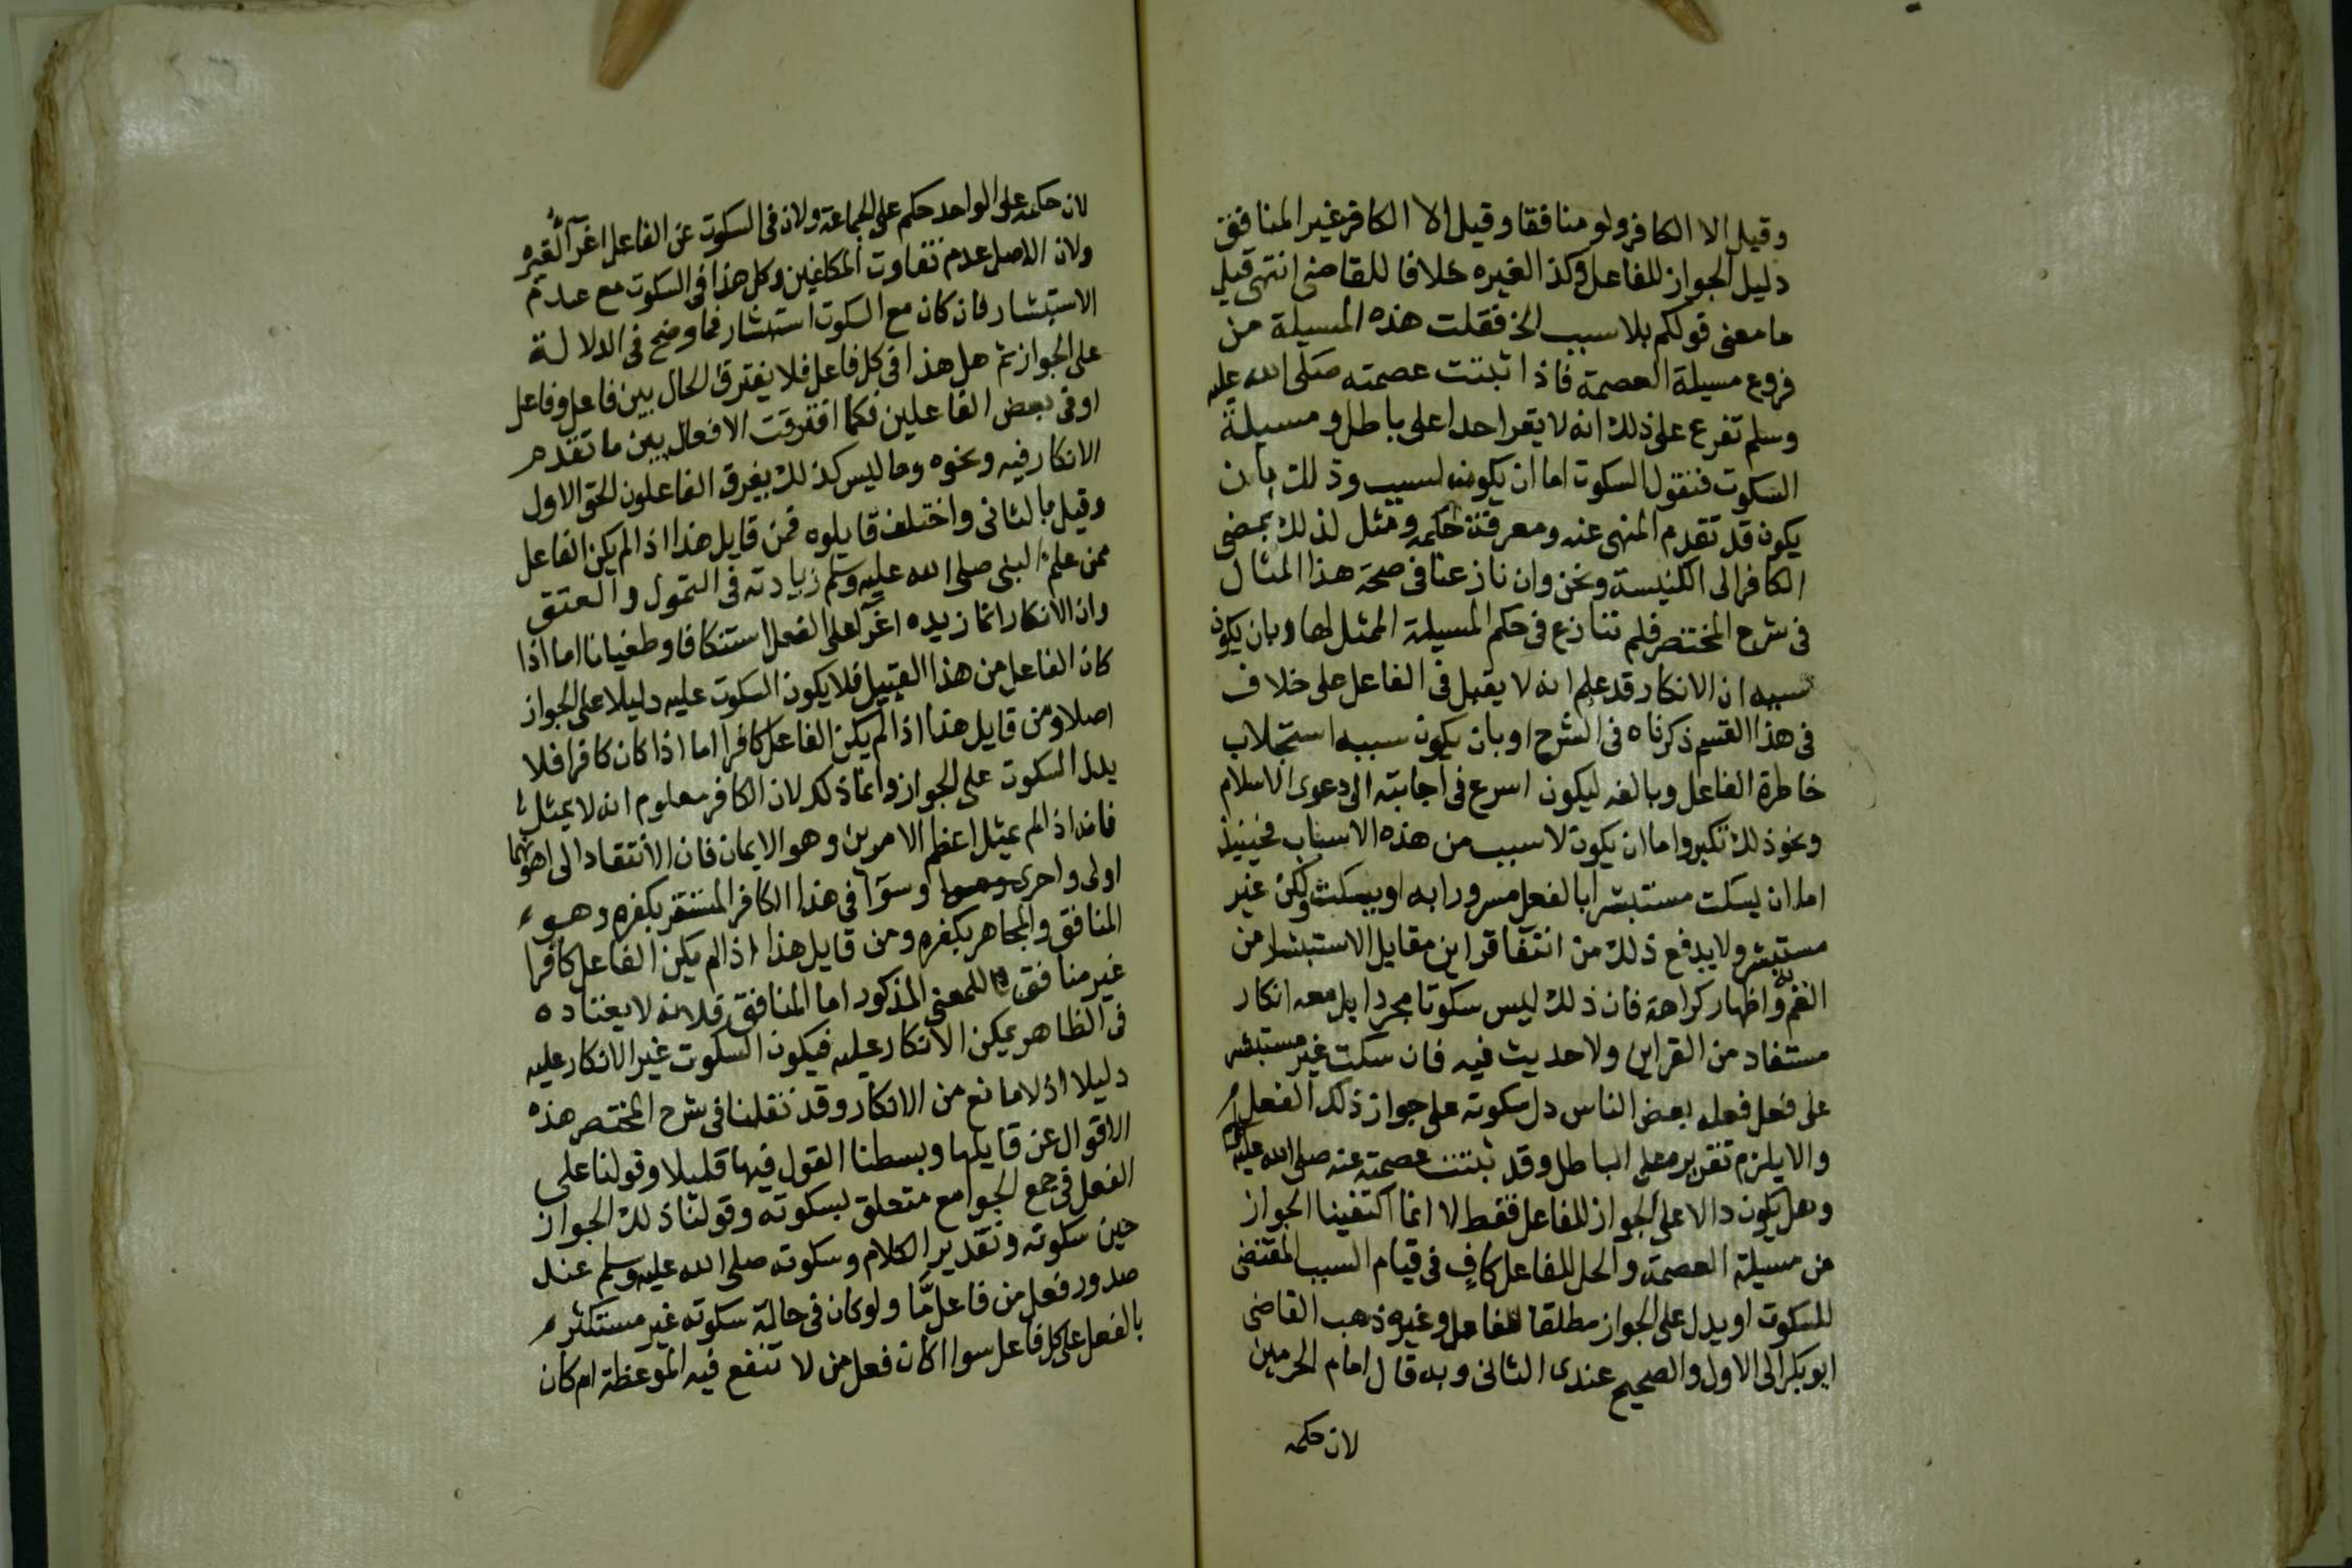 وقيل الا الكافر ولو منافقا وقيل الا الكافر غير المنافق
دليل الجواز للفاعل وكذا لغيره خلافا للقاضى انتهى قيل
ما معنى قولكم بلا سبب الخ فقلت هذه المسيلة من
فروع مسيلة العصمة فاذا ثبتت عصمته صلى الله عليه
وسلم تفرع على ذلك انه لا يقر احدا على باطل و مسيلة
السكوت فنقول السكوت اما ان يكون لسبب وذلك بان
يكون قد تقدم المنهى عنه ومعرفة حكمه ومثل لذلك بمضى
الكافر الى الكنيسة ونحن وان نازعنا فى صحة هذا المثال
فى شرح المختصر فلم ننازع فى حكم المسيلة الممثل لها وبان يكون
سببه ان الانكار قد علم انه لا يقبل فى الفاعل على خلاف
فى هذا القسم ذكرناه فى الشرح او بان يكون سببه استجلاب
خاطرة الفاعل وبالفه ليكون اسرع فى اجابته الى دعوى الاسلام
ونحو ذلك نكير واما ان يكون لا سبب من هذه الاسباب فحينيذ
اما ان يسكت مستبشرا بالفعل مسرورا به او يسكت ولكن غير
مستبشر ولا يدفع ذلك من انتفا قراين مقابل الاستبشار من
الغم به واظهار كراهة فان ذلك ليس سكوتا مجردا بل معه انكار
مستفاد من القراين ولا حديث فيه فان سكت غير مستبشر
على فعل فعله بعض الناس دل سكوته على جواز ذلك الفعل
والا يلزم تقريره على الباطل وقد ثبتت عصمته عنه صلى الله عليه وسلم
وهل يكون دالا على الجواز للفاعل فقط لا انما اكتفينا الجواز
من مسيلة العصمة والحل للفاعل كافٍ فى قيام السبب المقتضى
للسكوت او يدل على الجواز مطلقا للفاعل وغيره ذهب القاضى
ابو بكر الى الاول والصحيح عندى الثانى وبه قال امام الحرمين
لان حكمه
لان حكمه على الواحد حكم على الجماعة ولان فى السكوت عن الفاعل اغرآ لغيره
ولان الاصل عدم تفاوت المكلفين وكل هذا فى السكوت مع عدم
الاستبشار فان كان مع السكوت استبشار فما وضح فى الدلالة
على الجواز ثم هل هذا فى كل فاعل فلا يفترق الحال بين فاعل وفاعل
او فى بعض الفاعلين فكما افترقت الافعال بين ما تقدم
الانكار فيه ونحوه وما ليس كذلك يفرق الفاعلون الحق الاول
وقيل بالثانى واختلف قايلوه فمن قايل هذا اذا لم يكن الفاعل
ممن علم النبى صلى الله عليه وسلم زيادته فى التمول والعتق
وان الانكار انما زيده اغرآ على الفعل استنكافا وطغيانا اما اذا
كان الفاعل من هذا القبيل فلا يكون السكوت عليه دليلا على الجواز
اصلا ومن قايل هذا اذا لم يكن الفاعل كافرا اما اذا كان كافرا فلا
يدل السكوت على الجواز وانما ذلك لان الكافر معلوم انه لا يمتثل
فانه اذا لم يمتثل اعظم الامرين وهو الايمان فان الانتقاد الى اهونهما
اولى واحرى وسوآ فى هذا الكافر المستقر بكفره وهو
المنافق والمجاهر بكفره ومن قايل هذا اذا لم يكن الفاعل كافرا
غير منافق للمعنى المذكور اما المنافق فلانه لا يعتاده
فى الظاهر يمكن الانكار عليه فيكون السكوت غير الانكار عليه
دليلا اذ لا مانع من الانكار وقد نقلنا فى شرح المختصر هذه
الاقوال عن قايلها وبسطنا القول فيها قليلا وقولنا على
الفعل فى جمع الجوامع متعلق بسكوته وقولنا ذلك الجواز
حين سكوته وتقدير الكلام وسكوته صلى الله عليه وسلم عند
صدور فعل من فاعل مّا ولو كان فى حالة سكوته غير مستكثر
بالفعل على كل فاعل سوا اكان فعل من لا تنفع فيه الموعظة ام كان